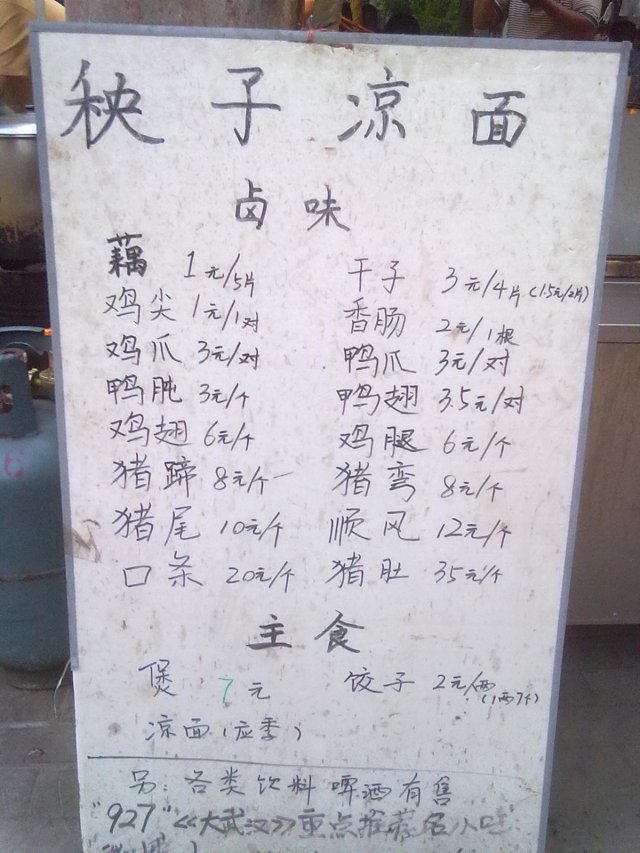 秧子凉面
卤味
藕 1元/5片 干子 3元/4片(1.5元/2片)
鸡尖 1元/1对 香肠 2元/1根
鸡爪 3元/对 鸭爪 3元/对
鸭肫 3元/个 鸭翅 3.5元/对
鸡翅 6元/个 鸡腿 6元/个
猪蹄 8元/个 猪弯 8元/个
猪尾 10元/个 顺风 12元/个
口条 20元/个 猪肚 35元/个
主食
煲 7元 饺子 2元/两(1两7个)
凉面(应季)
另:各类饮料啤酒有售
"927"《大武汉》重点推荐名小吃